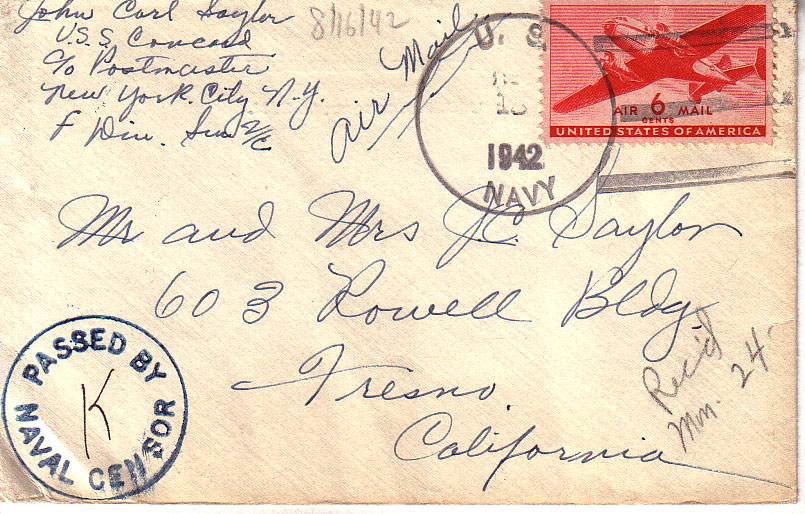 John Carl Saylor
U.S.S. Concord
c/o Postmaster
New York City N.Y.
F Div. Sea 2/c
8/16/42
Air Mail
U. S.
1942
NAVY
AIR 6 MAIL
CENTS
UNITED STATES OF AMERICA
Mr and Mrs J.C. Saylor
603 Rowell Bldg.
Fresno,
California
Rec'd
Mon. 24-
PASSED BY
K
NAVAL CENSOR